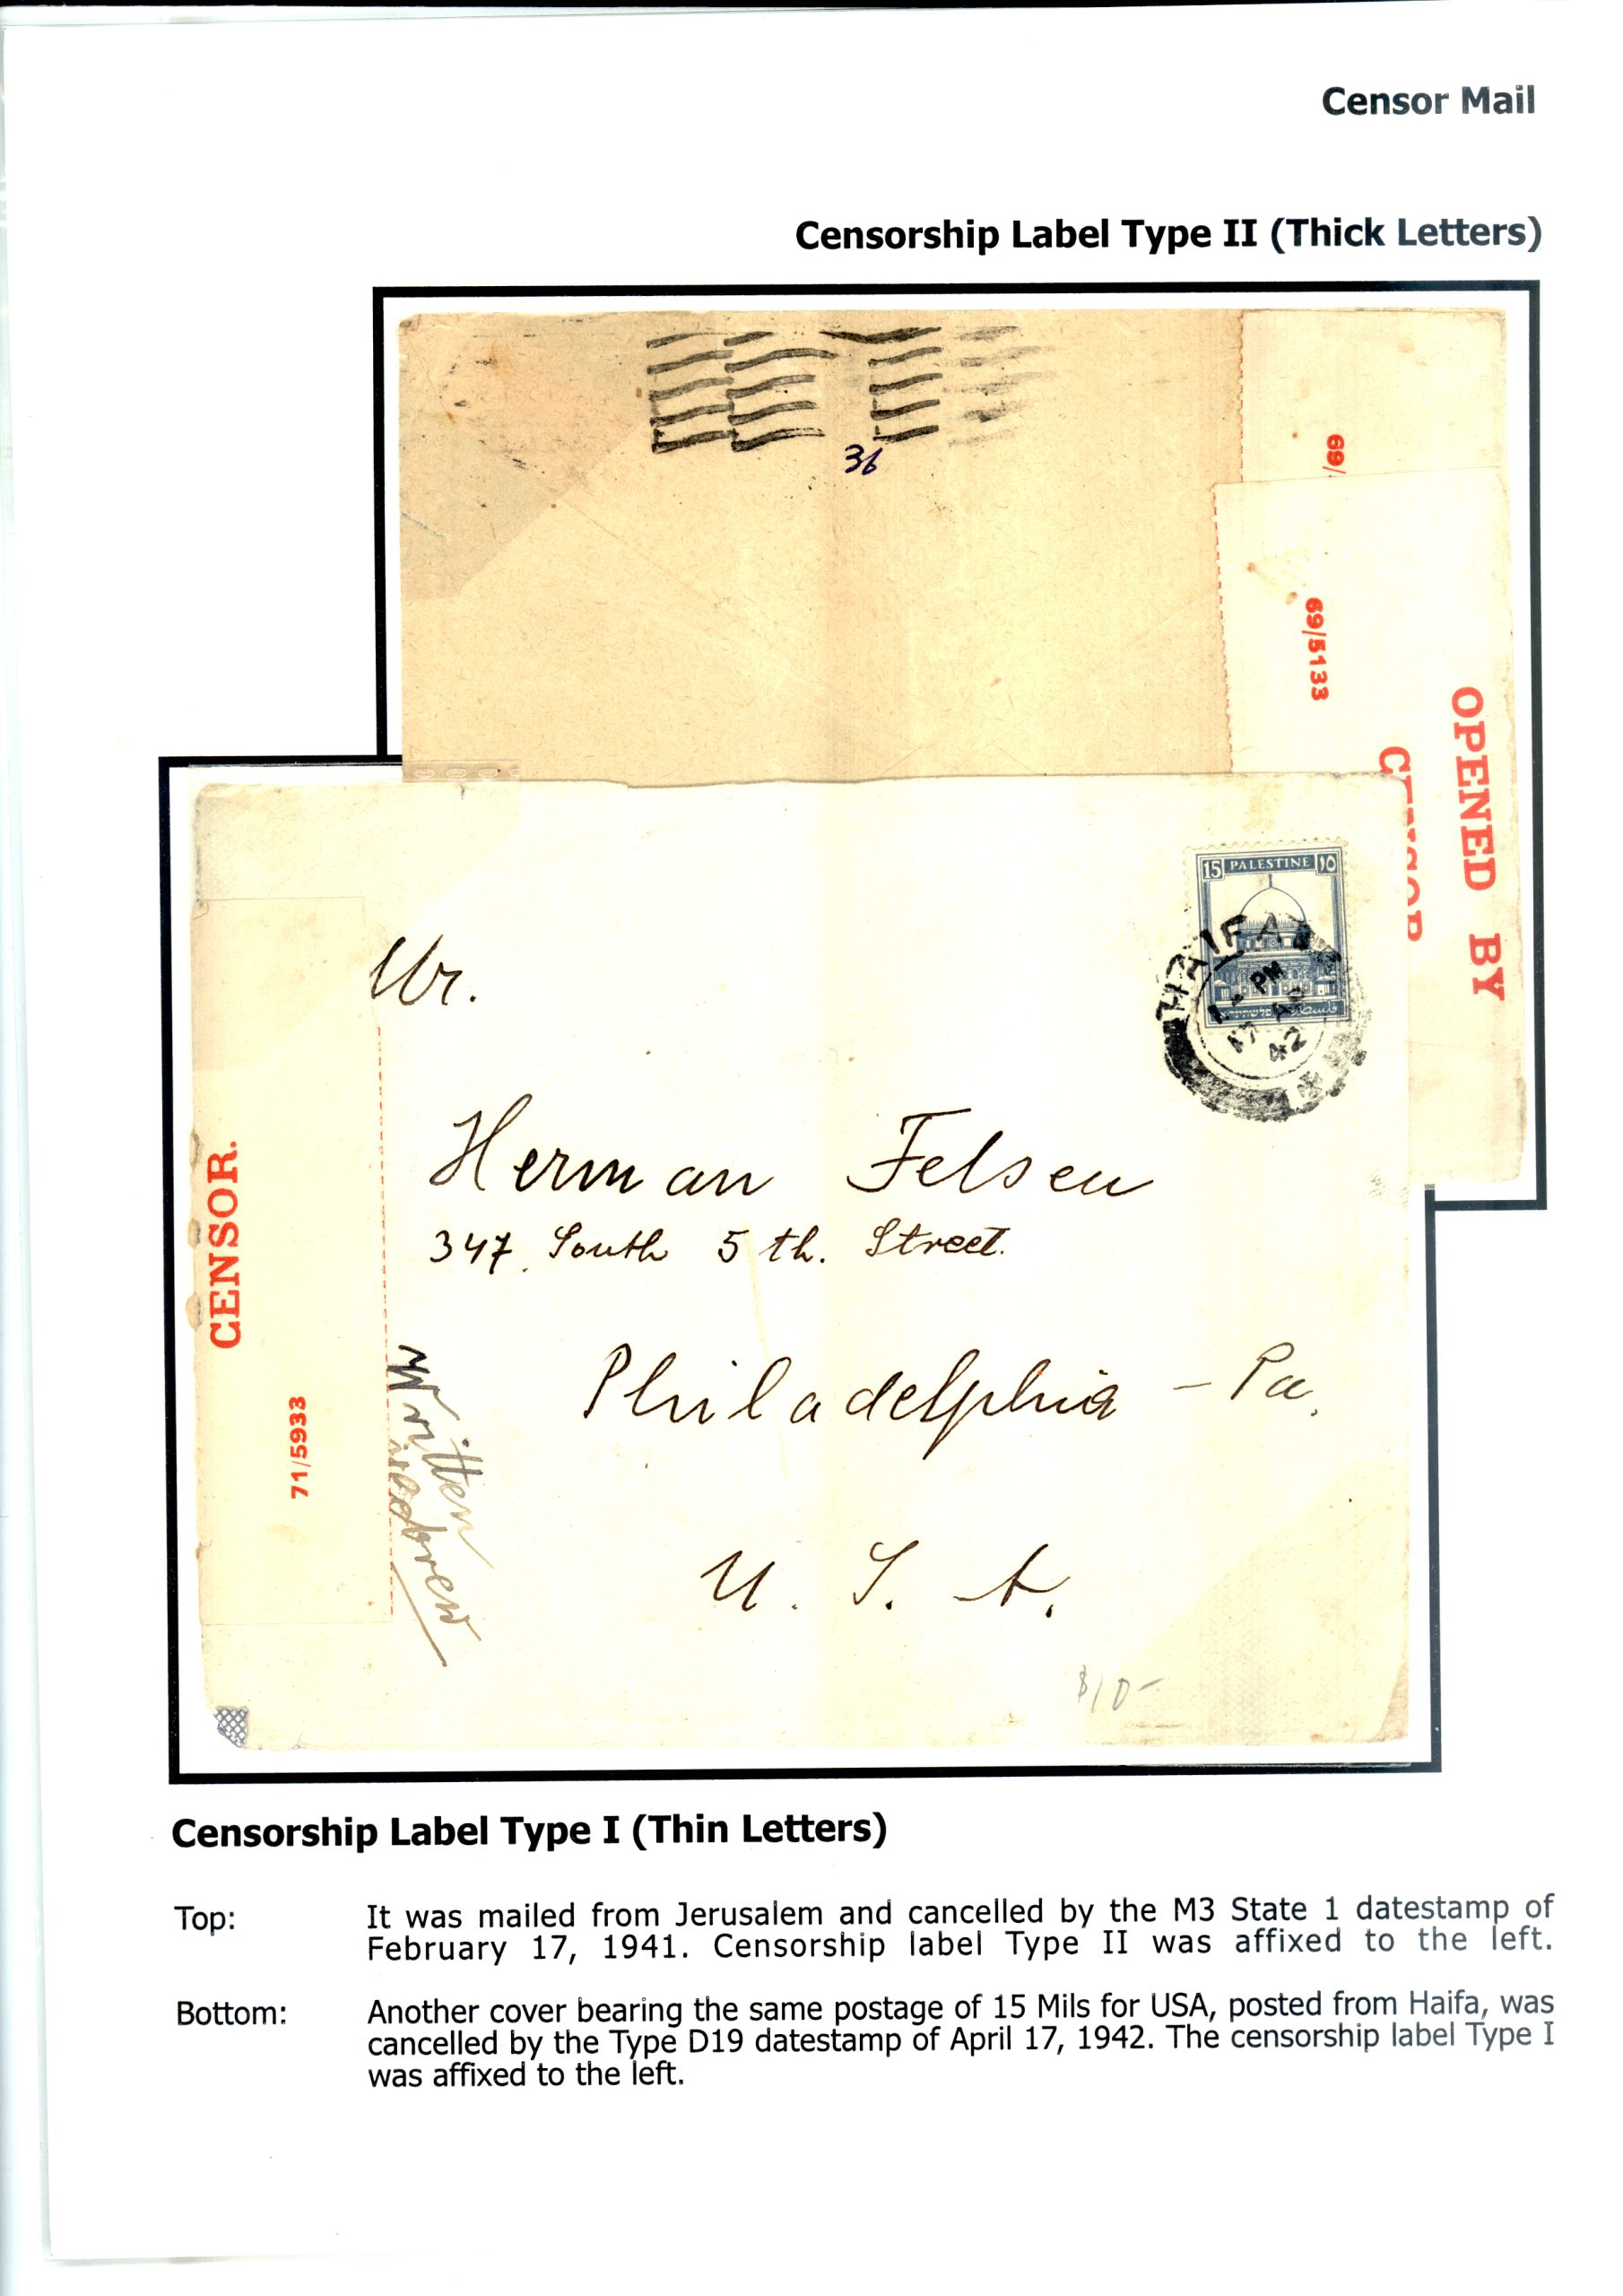 Censor Mail
Censorship Label Type II (Thick Letters)
36
69/
69/5133
OPENED BY
CENSOR
15 PALESTINE ١٥
HAIFA
PM
17 AP
42
Mr.
Herman Felsen
347. South 5th. Street.
Philadelphia - Pa.
U. S. A.
CENSOR.
71/5933
Written
$10-
Censorship Label Type I (Thin Letters)
Top: It was mailed from Jerusalem and cancelled by the M3 State 1 datestamp of
February 17, 1941. Censorship label Type II was affixed to the left.
Bottom: Another cover bearing the same postage of 15 Mils for USA, posted from Haifa, was
cancelled by the Type D19 datestamp of April 17, 1942. The censorship label Type I
was affixed to the left.